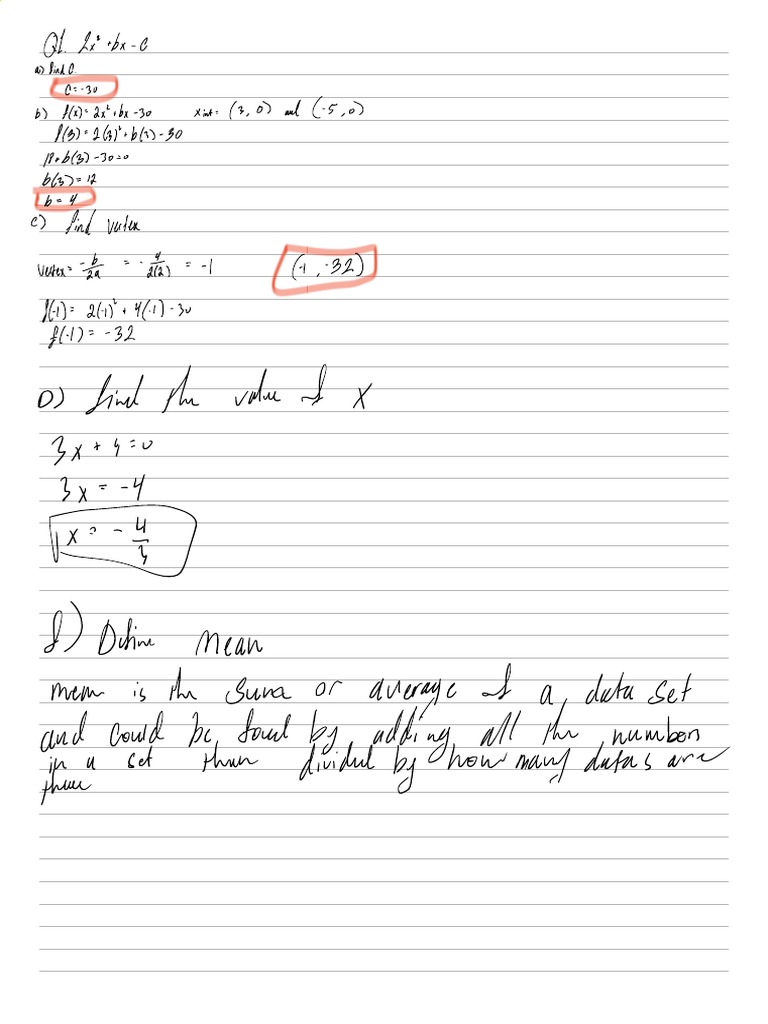 Q1. 2x² + bx - c
a) find C.
C = -30
b) f(x) = 2x² + bx - 30 x int = (3, 0) and (-5, 0)
f(3) = 2(3)² + b(3) - 30
18 + b(3) - 30 = 0
b(3) = 12
b = 4
c) find vertex
Vertex = -b/2a = -4/2(2) = -1 (-1, -32)
f(-1) = 2(-1)² + 4(-1) - 30
f(-1) = -32
D) find the value of X
3x + 4 = 0
3x = -4
x = -4/3
f) Define Mean
mean is the Sum or average of a data set
and could be found by adding all the numbers
in a set then divided by how many datas are
there